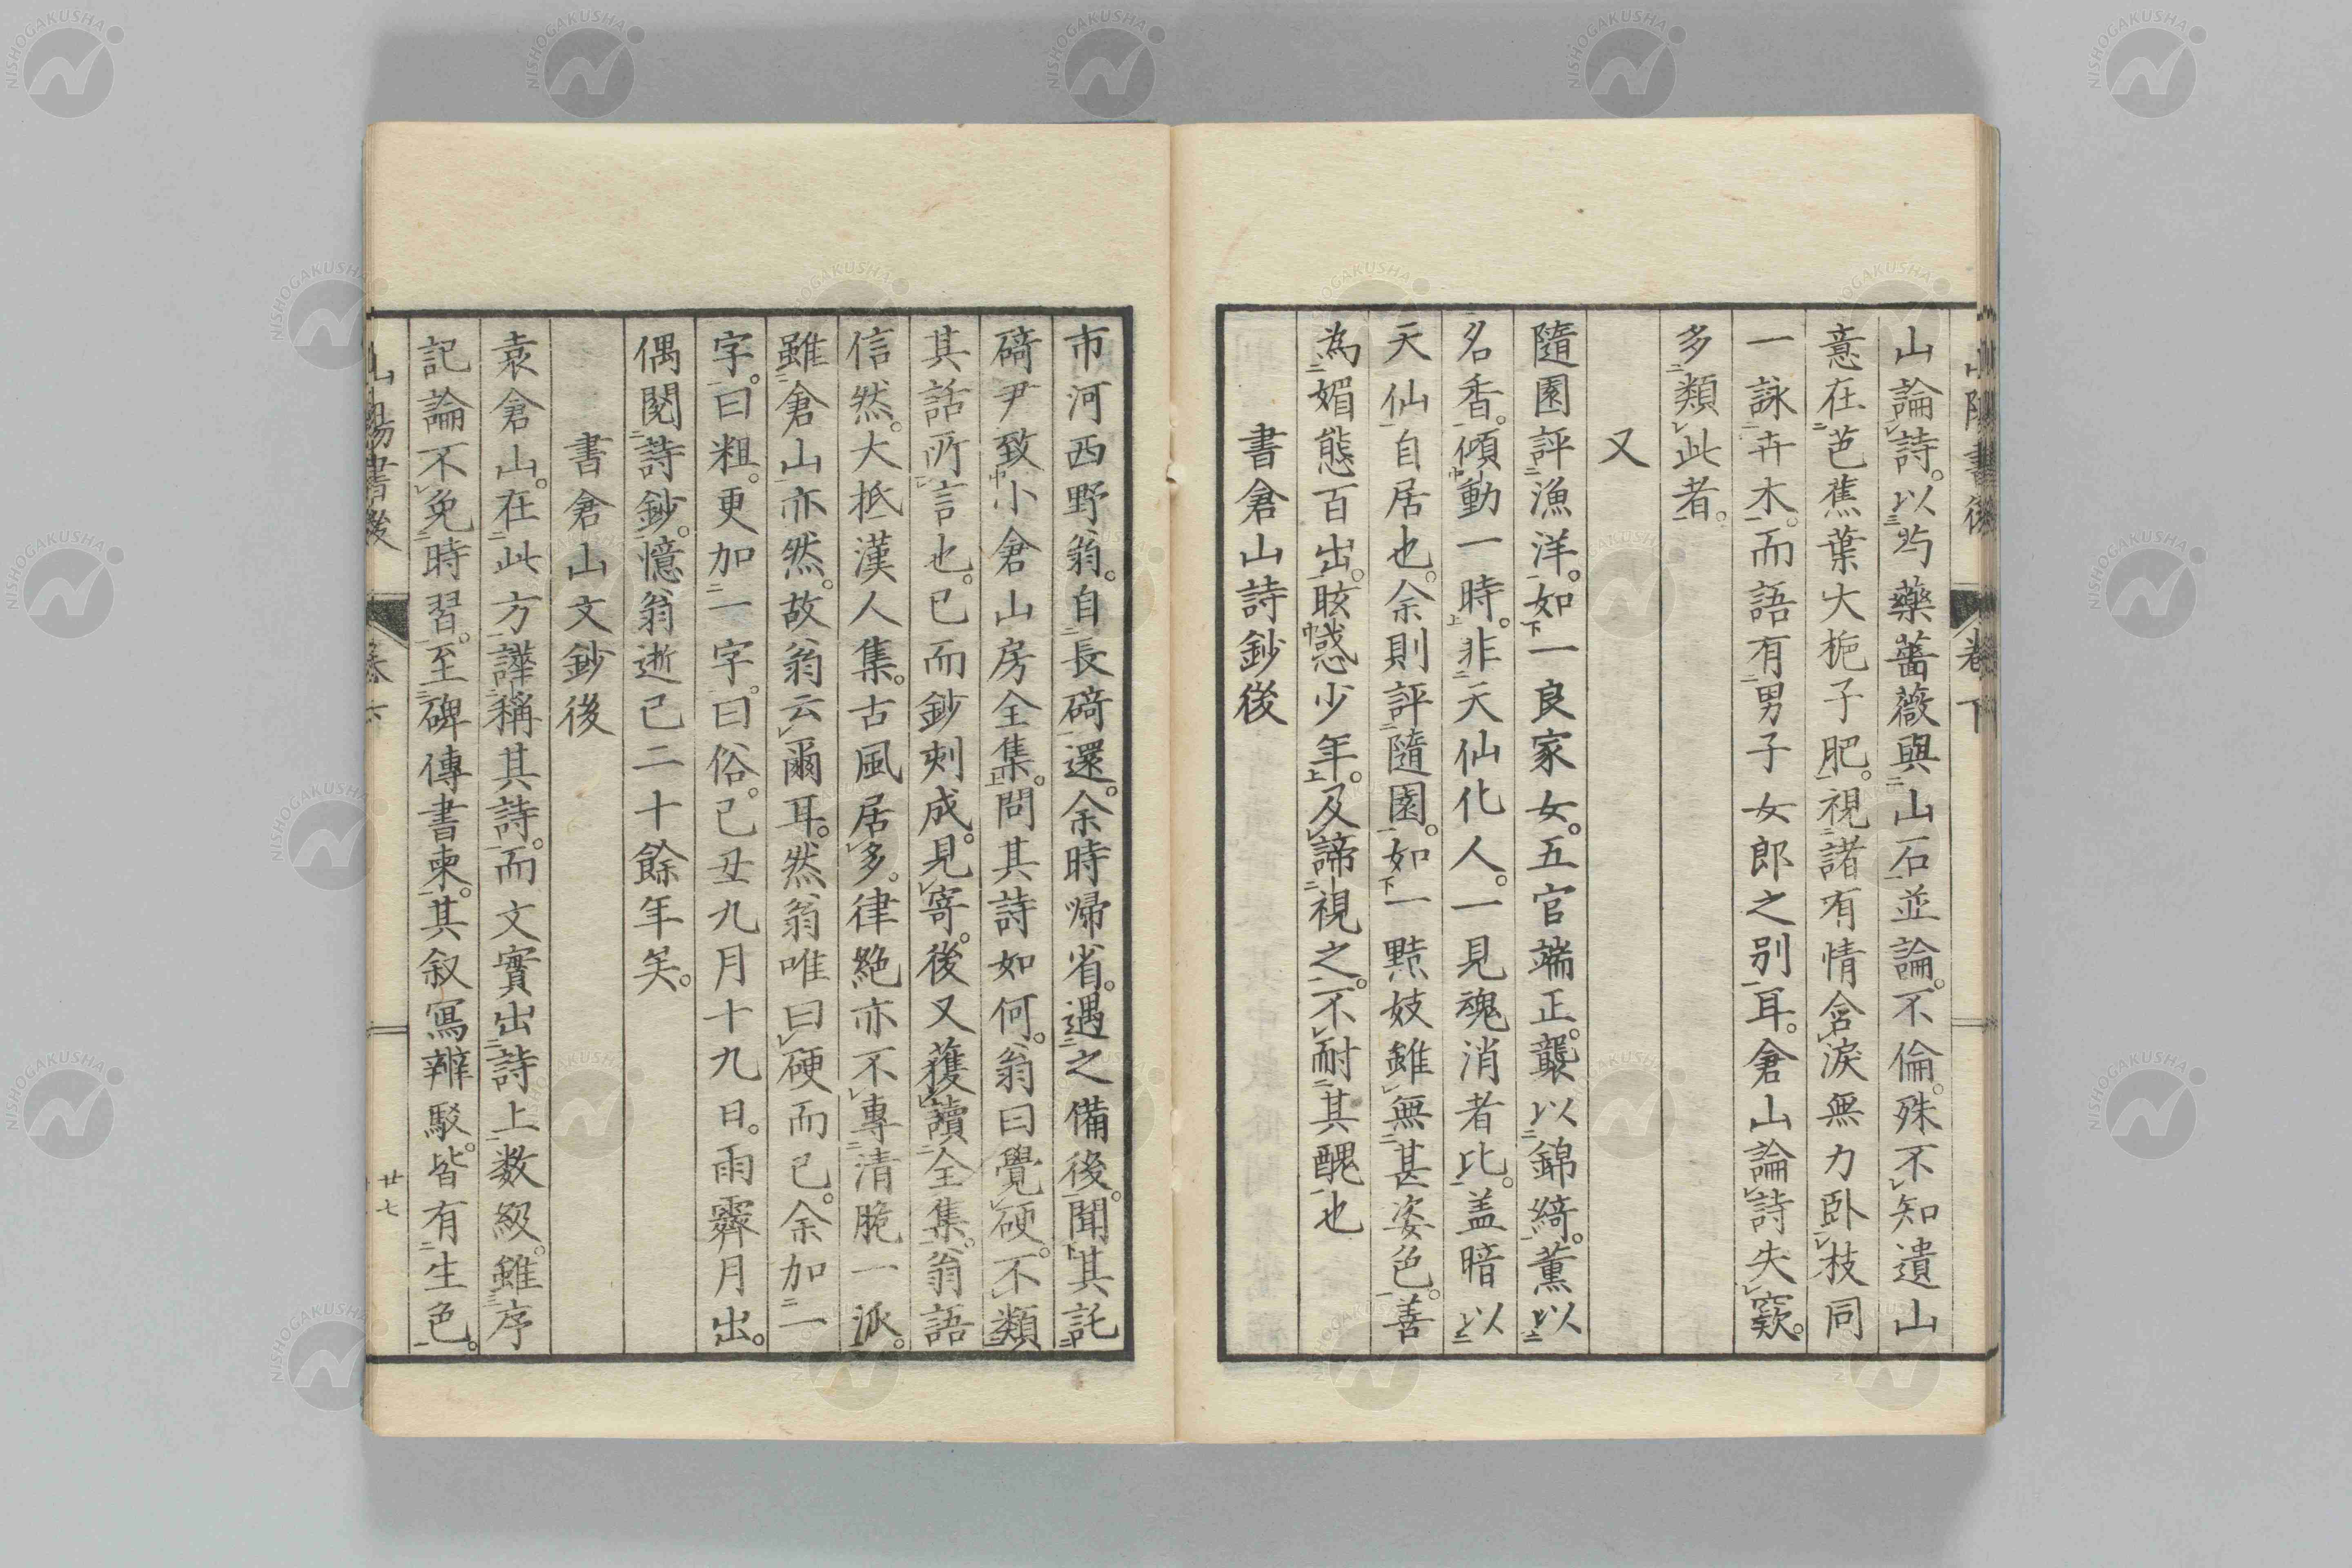 山論詩。以芍藥薔薇與山石並論。不倫。殊不知遺山
意在芭蕉葉大梔子肥。視諸有情含淚無力臥枝同
一詠卉木。而語有男子女郎之別耳。倉山論詩失窾。
多類此者。
又
隨園評漁洋。如一良家女。五官端正。襲以錦綺。薫以
名香。傾動一時。非天仙化人。一見魂消者比。盖暗以
天仙自居也。余則評隨園。如一黠妓雖無甚姿色。善
為媚態百出。眩惑少年。及諦視之。不耐其醜也
書倉山詩鈔後
市河西野翁。自長碕還。余時帰省。遇之備後。聞其託
碕尹致小倉山房全集。問其詩如何。翁曰覺硬。不類
其話所言也。已而鈔刺成。見寄。後又獲讀全集。翁語
信然。大抵漢人集。古風居多。律絕亦不專清脆一派。
雖倉山亦然。故翁云爾耳。然翁唯曰硬而已。余加一
字。曰粗。更加一字。曰俗。己丑九月十九日。雨霽月出。
偶閱詩鈔。憶翁逝已二十餘年矣。
書倉山文鈔後
袁倉山。在此方譁稱其詩。而文實出詩上数級。雖序
記論不免時習。至碑傳書柬。其叙寫辨駁。皆有生色。
山陽書後
卷下
廿七
NISHOGAKUSHA